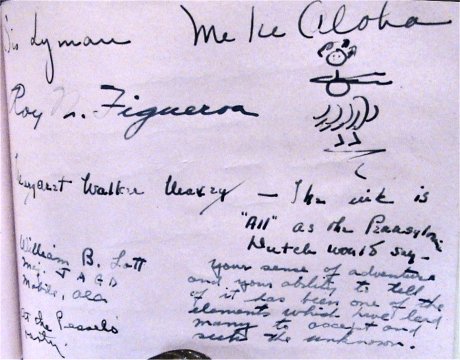 Lyman Me Ke Aloha
Roy Figueroa
Margaret Walker — The ink is
"All" as the Pennsylvania
Dutch would say -
William B. Lott
Maj. J A G D
Mobile, Ala
your sense of adventure
and your ability to tell the
of it has been one of the
elements which have lead
many to accept and
seek the unknown.
to the